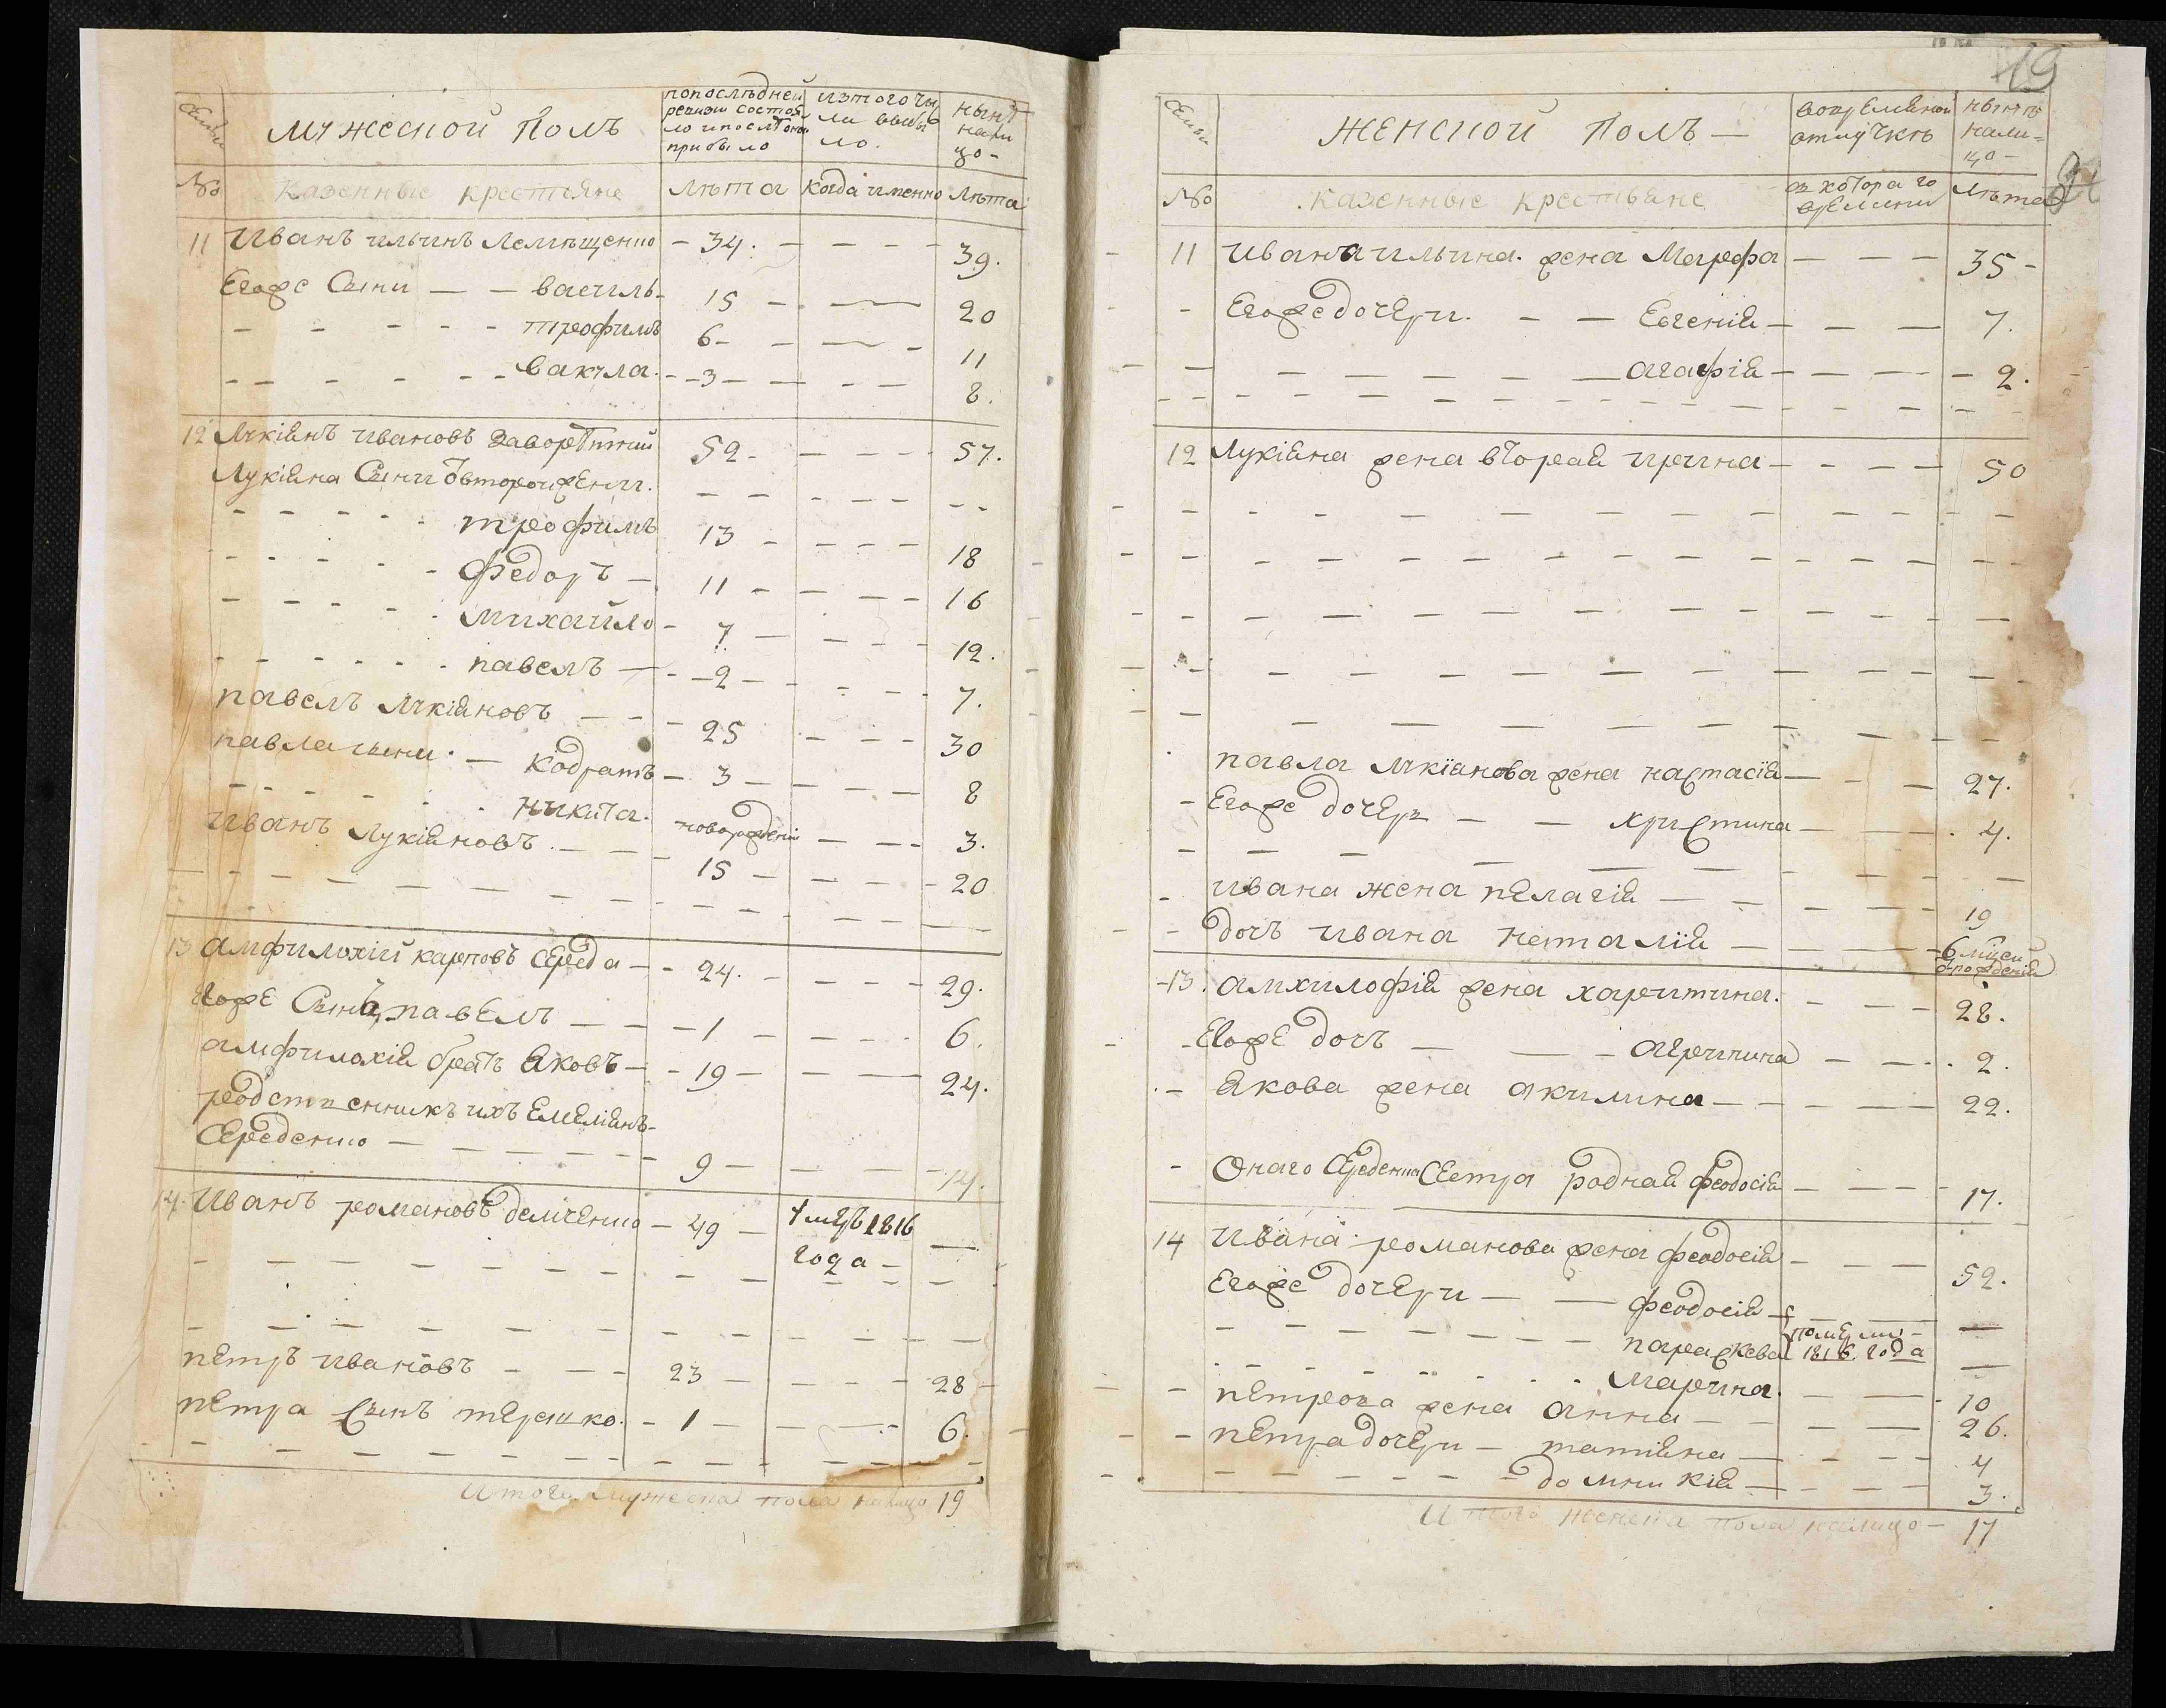 Семьи
Мужеской Полъ
попослѣдней ревизіи состоя
ло ипослѣ оной
прибыло
изтого чи
ла выбы
ло.
нынѣ
нали
цо -
№
Казенные крестьяне
лѣта
когда именно
лѣта
11 Иванъ ильинъ Лемѣщенко - 34. - - - - 39.
Егоже Сыни - - василь - 15 - - 20
- - - - - трофимъ 6 - - - - 11
- - - - - вакула. - 3 - - - - 8.
12 Лукіянъ ивановъ Заворѣтний 52 - - - - 57.
Лукіяна Сыни отвторой жены. - - - - - - -
- - - - - трофимъ 13 - - - - 18
- - - - - Федоръ - 11 - - - - 16
- - - - - михайло - 7 - - - - 12.
- - - - - павелъ - 2 - - - - 7.
павелъ лукіяновъ - - - 25 - - - 30
павла сыни. - Кодратъ - 3 - - - - 8
- - - - - никита. новорожденій - - - 3.
Иванъ Лукіяновъ. - - - 15 - - - - 20
13 амфилохій карповъ Середа - - 24. - - - - 29.
Егоже Сынъ павелъ - - - 1 - - - - 6.
амфилохія братъ Яковъ - - 19 - - - - 24.
родственникъ ихъ Емеліянъ -
Середенко - - - - - 9 - - - - 14.
14. Иванъ романовъ демченко - 49 - умеръ 1816
года - -
петръ ивановъ - - - 23 - - - - 28 -
петра Сынъ терешко. - 1 - - - 6.
Итого мужеска пола налицо 19
19
Семьи
Женской Полъ -
вовременой
отлучкѣ
нынѣ
нали=
цо -
№
Казенные крестьяне
съ котора го
времини
лѣта
11 Ивана ильина. жена Марфа - - - 35 -
- Егоже дочери. - - Евгенія - - - 7.
- - - - - - агафія - - - - 2.
12 Лукіяна жена вторая ирина - - - - 50
павла лукіянова жена настасія - - - 27.
- Егоже дочеръ - - христина - - - 4.
- ивана жена пелагія - - - - 19
- дочъ ивана наталія - - - 6 мѣсяц
отрожденія
13. амхилофія жена харитина. - - - 28.
- Егоже дочъ - - - агрипина - - - 2.
- Якова жена акилина - - - - 22.
- Онаго Середенка Сестра родная феодосія - - - 17.
14 Ивана романова жена феодосія - - - 52.
Егоже дочери - - феодосія - - -
- - - - - параскева померли -
1816. года -
- - - - - марина. - - - 10
- петрова жена анна - - - - 26.
- петра дочери - татіяна - - - - 4
- - - - - домникія - - - - 3.
Итого женска пола налицо - 17